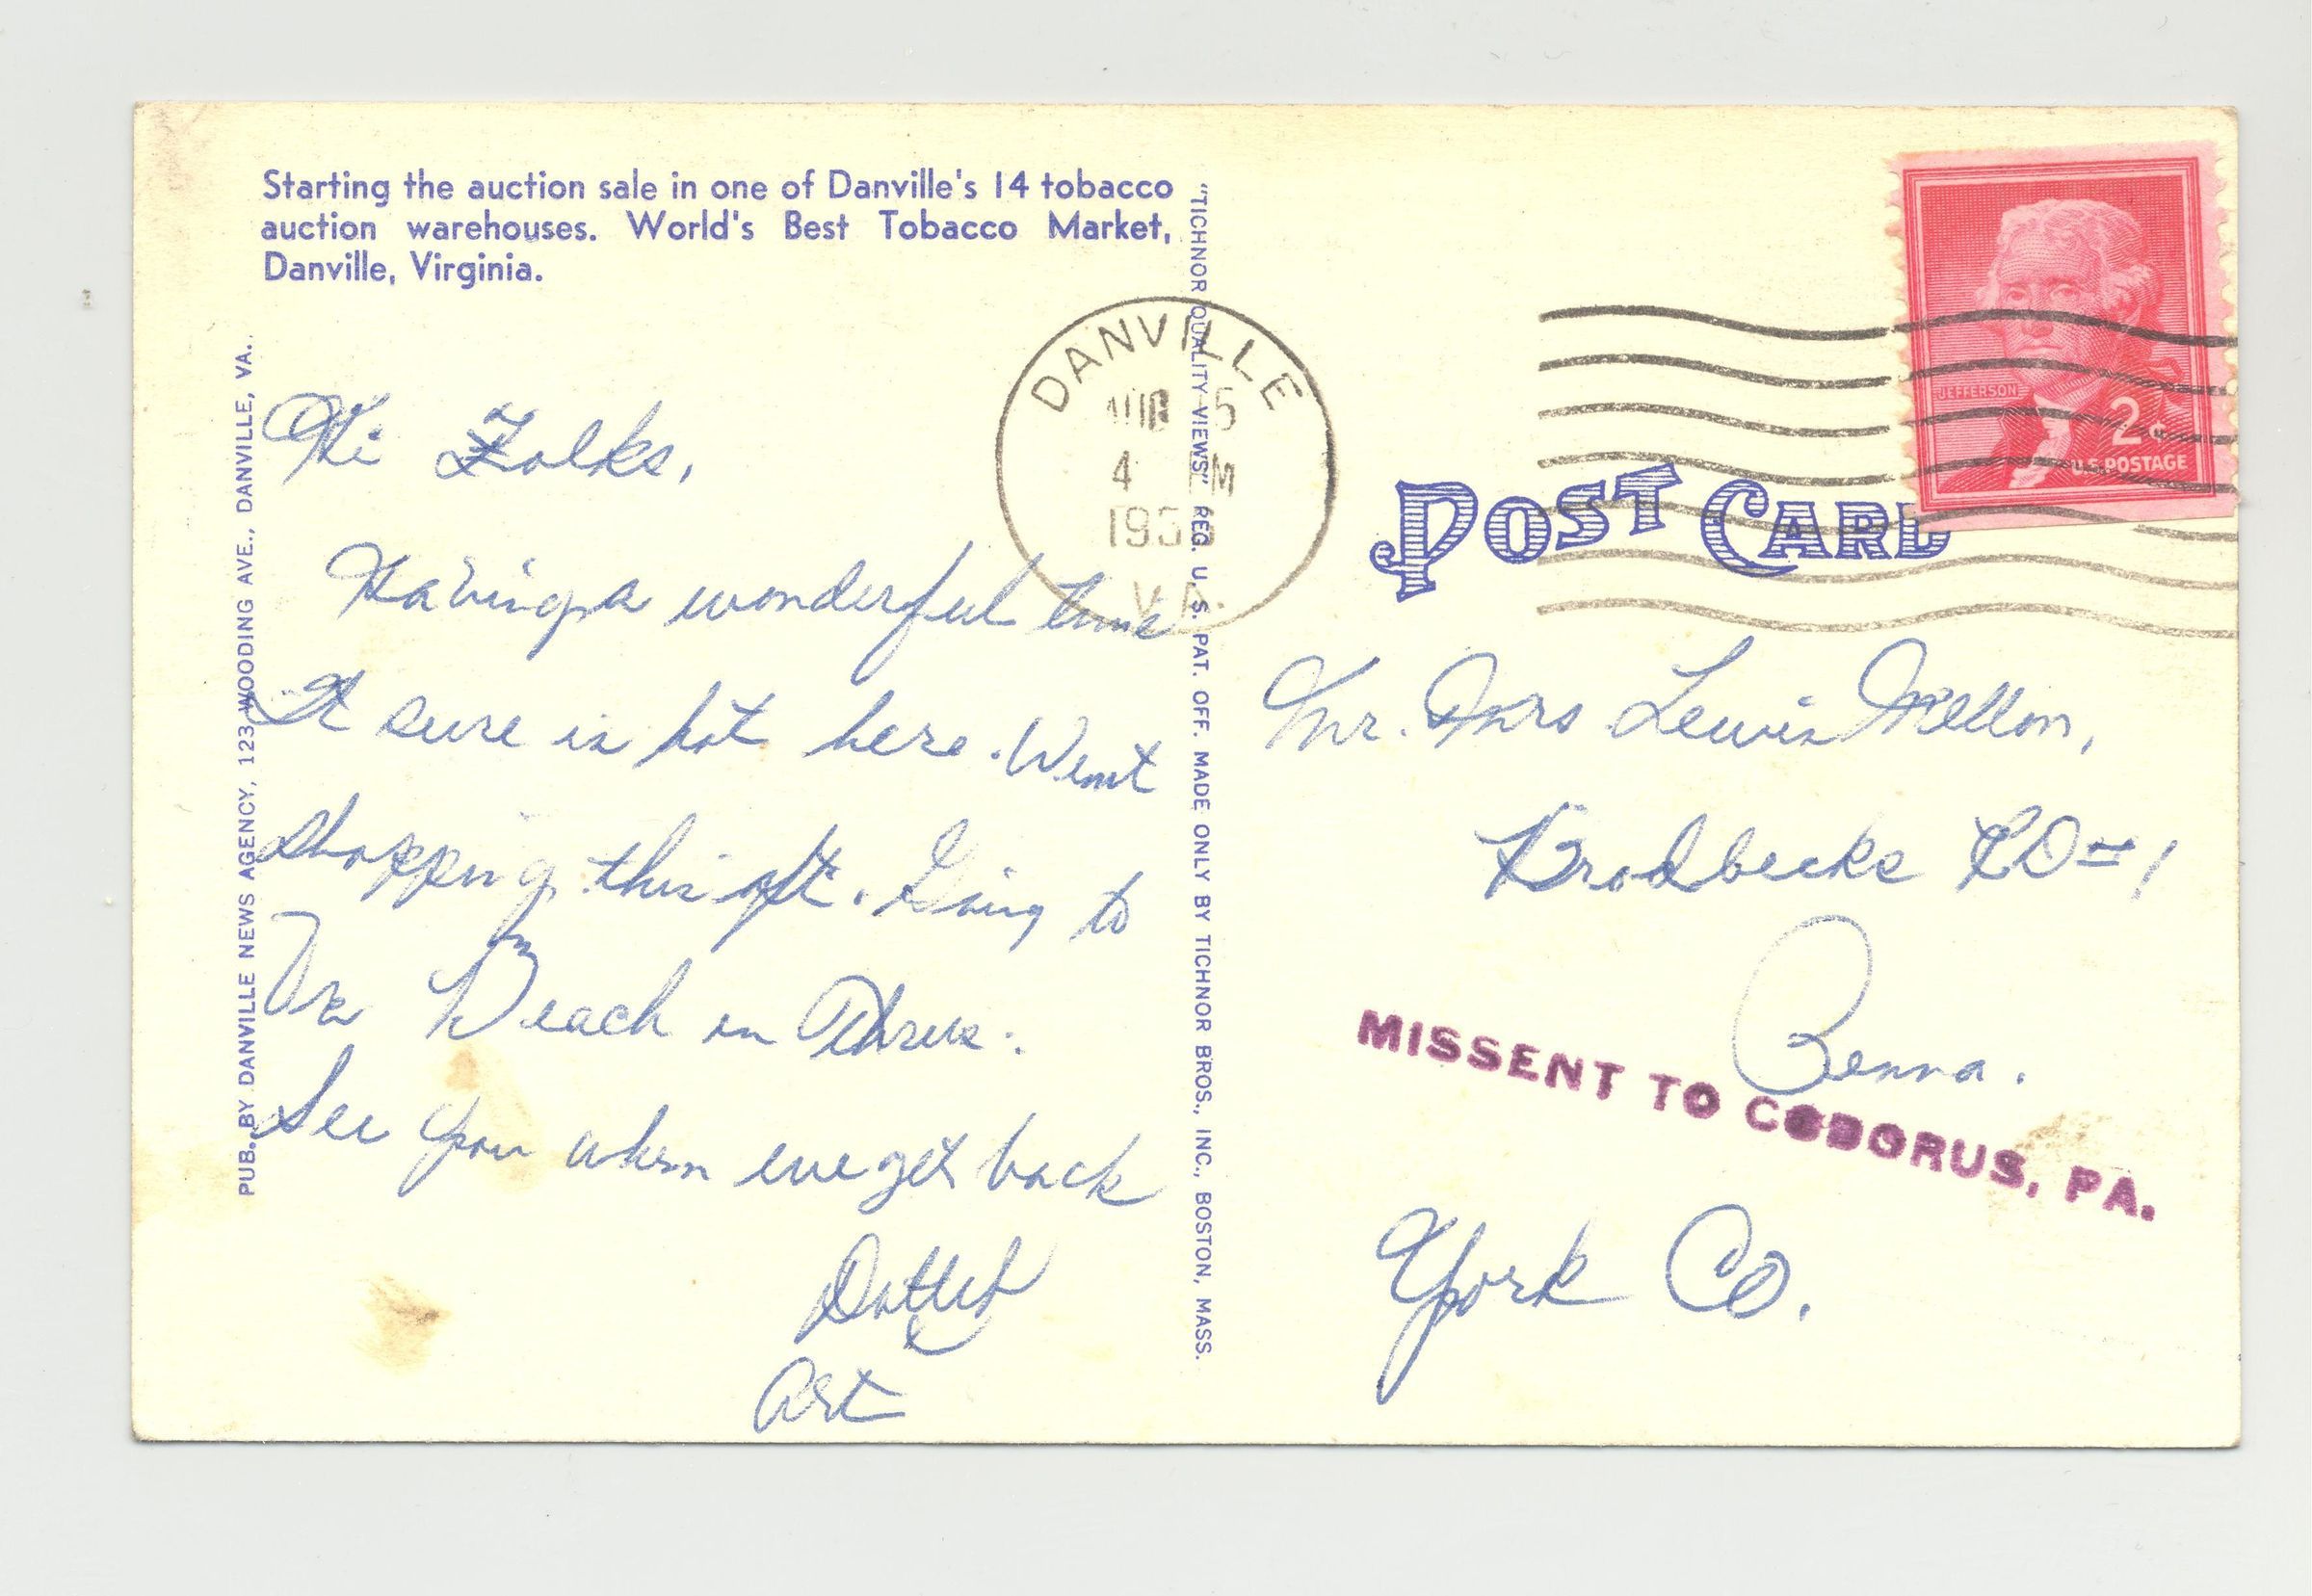 Starting the auction sale in one of Danville's 14 tobacco
auction warehouses. World's Best Tobacco Market,
Danville, Virginia.
PUB. BY DANVILLE NEWS AGENCY, 123 WOODING AVE., DANVILLE, VA.
Hi Folks,
Having a wonderful time
It sure is hot here. Went
shopping this aft. Going to
Va Beach on Thurs.
See you when we get back
Art
"TICHNOR QUALITY VIEWS" REG. U. S. PAT. OFF. MADE ONLY BY TICHNOR BROS., INC., BOSTON, MASS.
DANVILLE
AUG 5
4 PM
VA.
POST CARD
JEFFERSON
2¢
U.S. POSTAGE
Mr. Mrs Lewis Mellon,
Brodbecks RD #1
Penna.
MISSENT TO CODORUS, PA.
York Co.